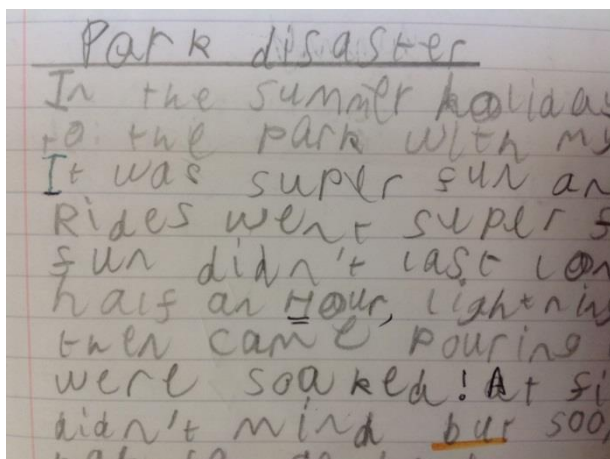 Park disaster
In the summer holiday
to the park with my
It was super fun an
Rides went super f
fun didn't last lon
half an Hour, lightning
then came pouring
were soaked! At fi
didn't mind but soo